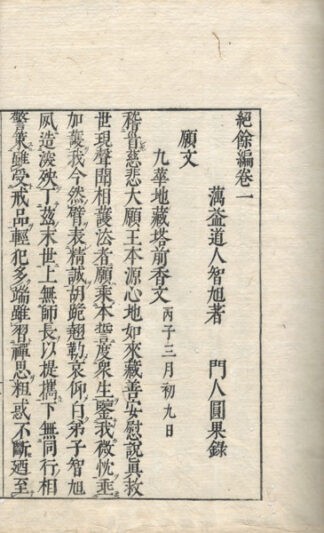 絕餘編卷一
蕅益道人智旭著 門人圓果錄
願文
九華地藏塔前香文 丙子三月初九日
稽首慈悲大願王本源心地如來藏善安慰說真救
世現聲聞相護法者願乘本誓度眾生鑒我微忱垂
加護我今然臂表精誠胡跪翹勤哀仰白弟子智旭
夙造深殃丁茲末世上無師長以提攜下無同行相
警策雖受戒品輕犯多端雖習禪思粗惑不斷迺至